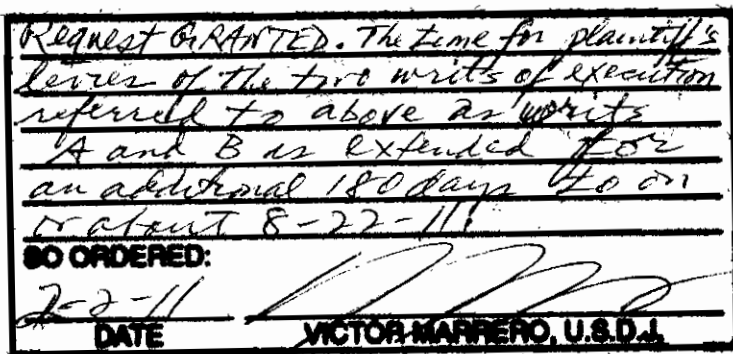 Request GRANTED. The time for plaintiff's
levies of the two writs of execution
referred to above as writs
A and B is extended for
an additional 180 days to on
or about 8-22-11.
SO ORDERED:
2-2-11
DATE VICTOR MARRERO, U.S.D.J.